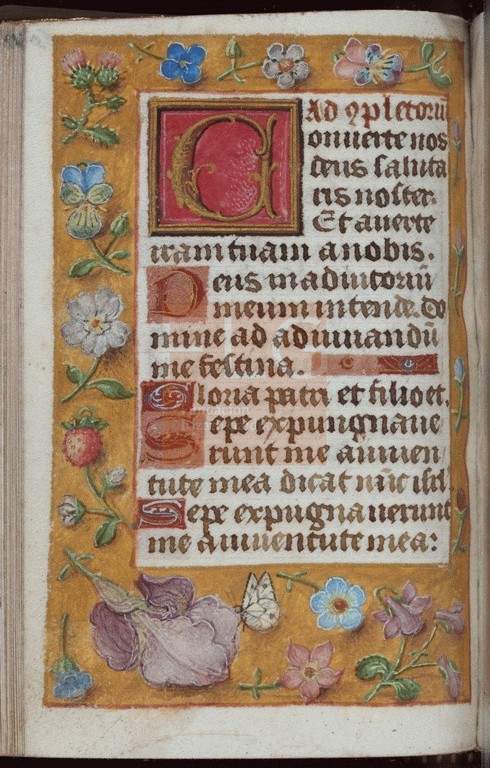 Ad ɔpletoriū
Conuerte nos
deus saluta
ris noster.
Et auerte
iram tuam a nobis.
Deus in adiutoriū
meum intende. Do
mine ad adiuuandū
me festina.
Gloria patri et filio et.
Sepe expugnaue
runt me a iuuen
tute mea dicat nūc isrl
Sepe expugnauerunt
me a iuuentute mea: